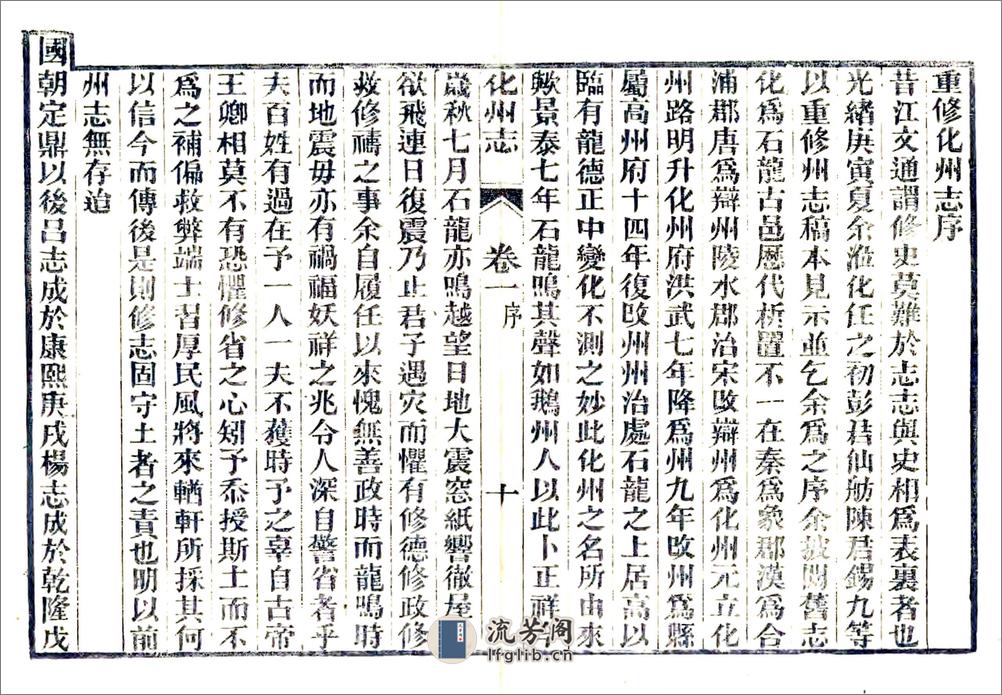 重修化州志序
昔江文通謂修史莫難於志志與史相爲表裏者也
光緒庚寅夏余涖化任之初彭君仙舫陳君錫九等
以重修州志稿本見示並乞余爲之序余披閱舊志
化爲石龍古邑歷代析置不一在秦爲象郡漢爲合
浦郡唐爲辯州陵水郡治宋改辯州爲化州元立化
州路明升化州府洪武七年降爲州九年改州爲縣
屬高州府十四年復改州治處石龍之上居高以
臨有龍德正中變化不測之妙此化州之名所由來
歟景泰七年石龍鳴其聲如鵝州人以此卜正祥
化州志
卷一
序
十
歲秋七月石龍亦鳴越望日地大震窓紙響徹屋
欲飛連日復震乃止君子遇灾而懼有修德修政修
救修禱之事余自履任以來愧無善政時而龍鳴時
而地震毋亦有禍福妖祥之兆令人深自警省者乎
夫百姓有過在予一人一夫不獲時予之辜自古帝
王卿相莫不有恐懼修省之心矧予忝授斯土而不
爲之補偏救弊端士習厚民風將來輶軒所採其何
以信今而傳後是則修志固守土者之責也明以前
州志無存迨
國朝定鼎以後呂志成於康熙庚戌楊志成於乾隆戊
流芳阁
lfglib.cn